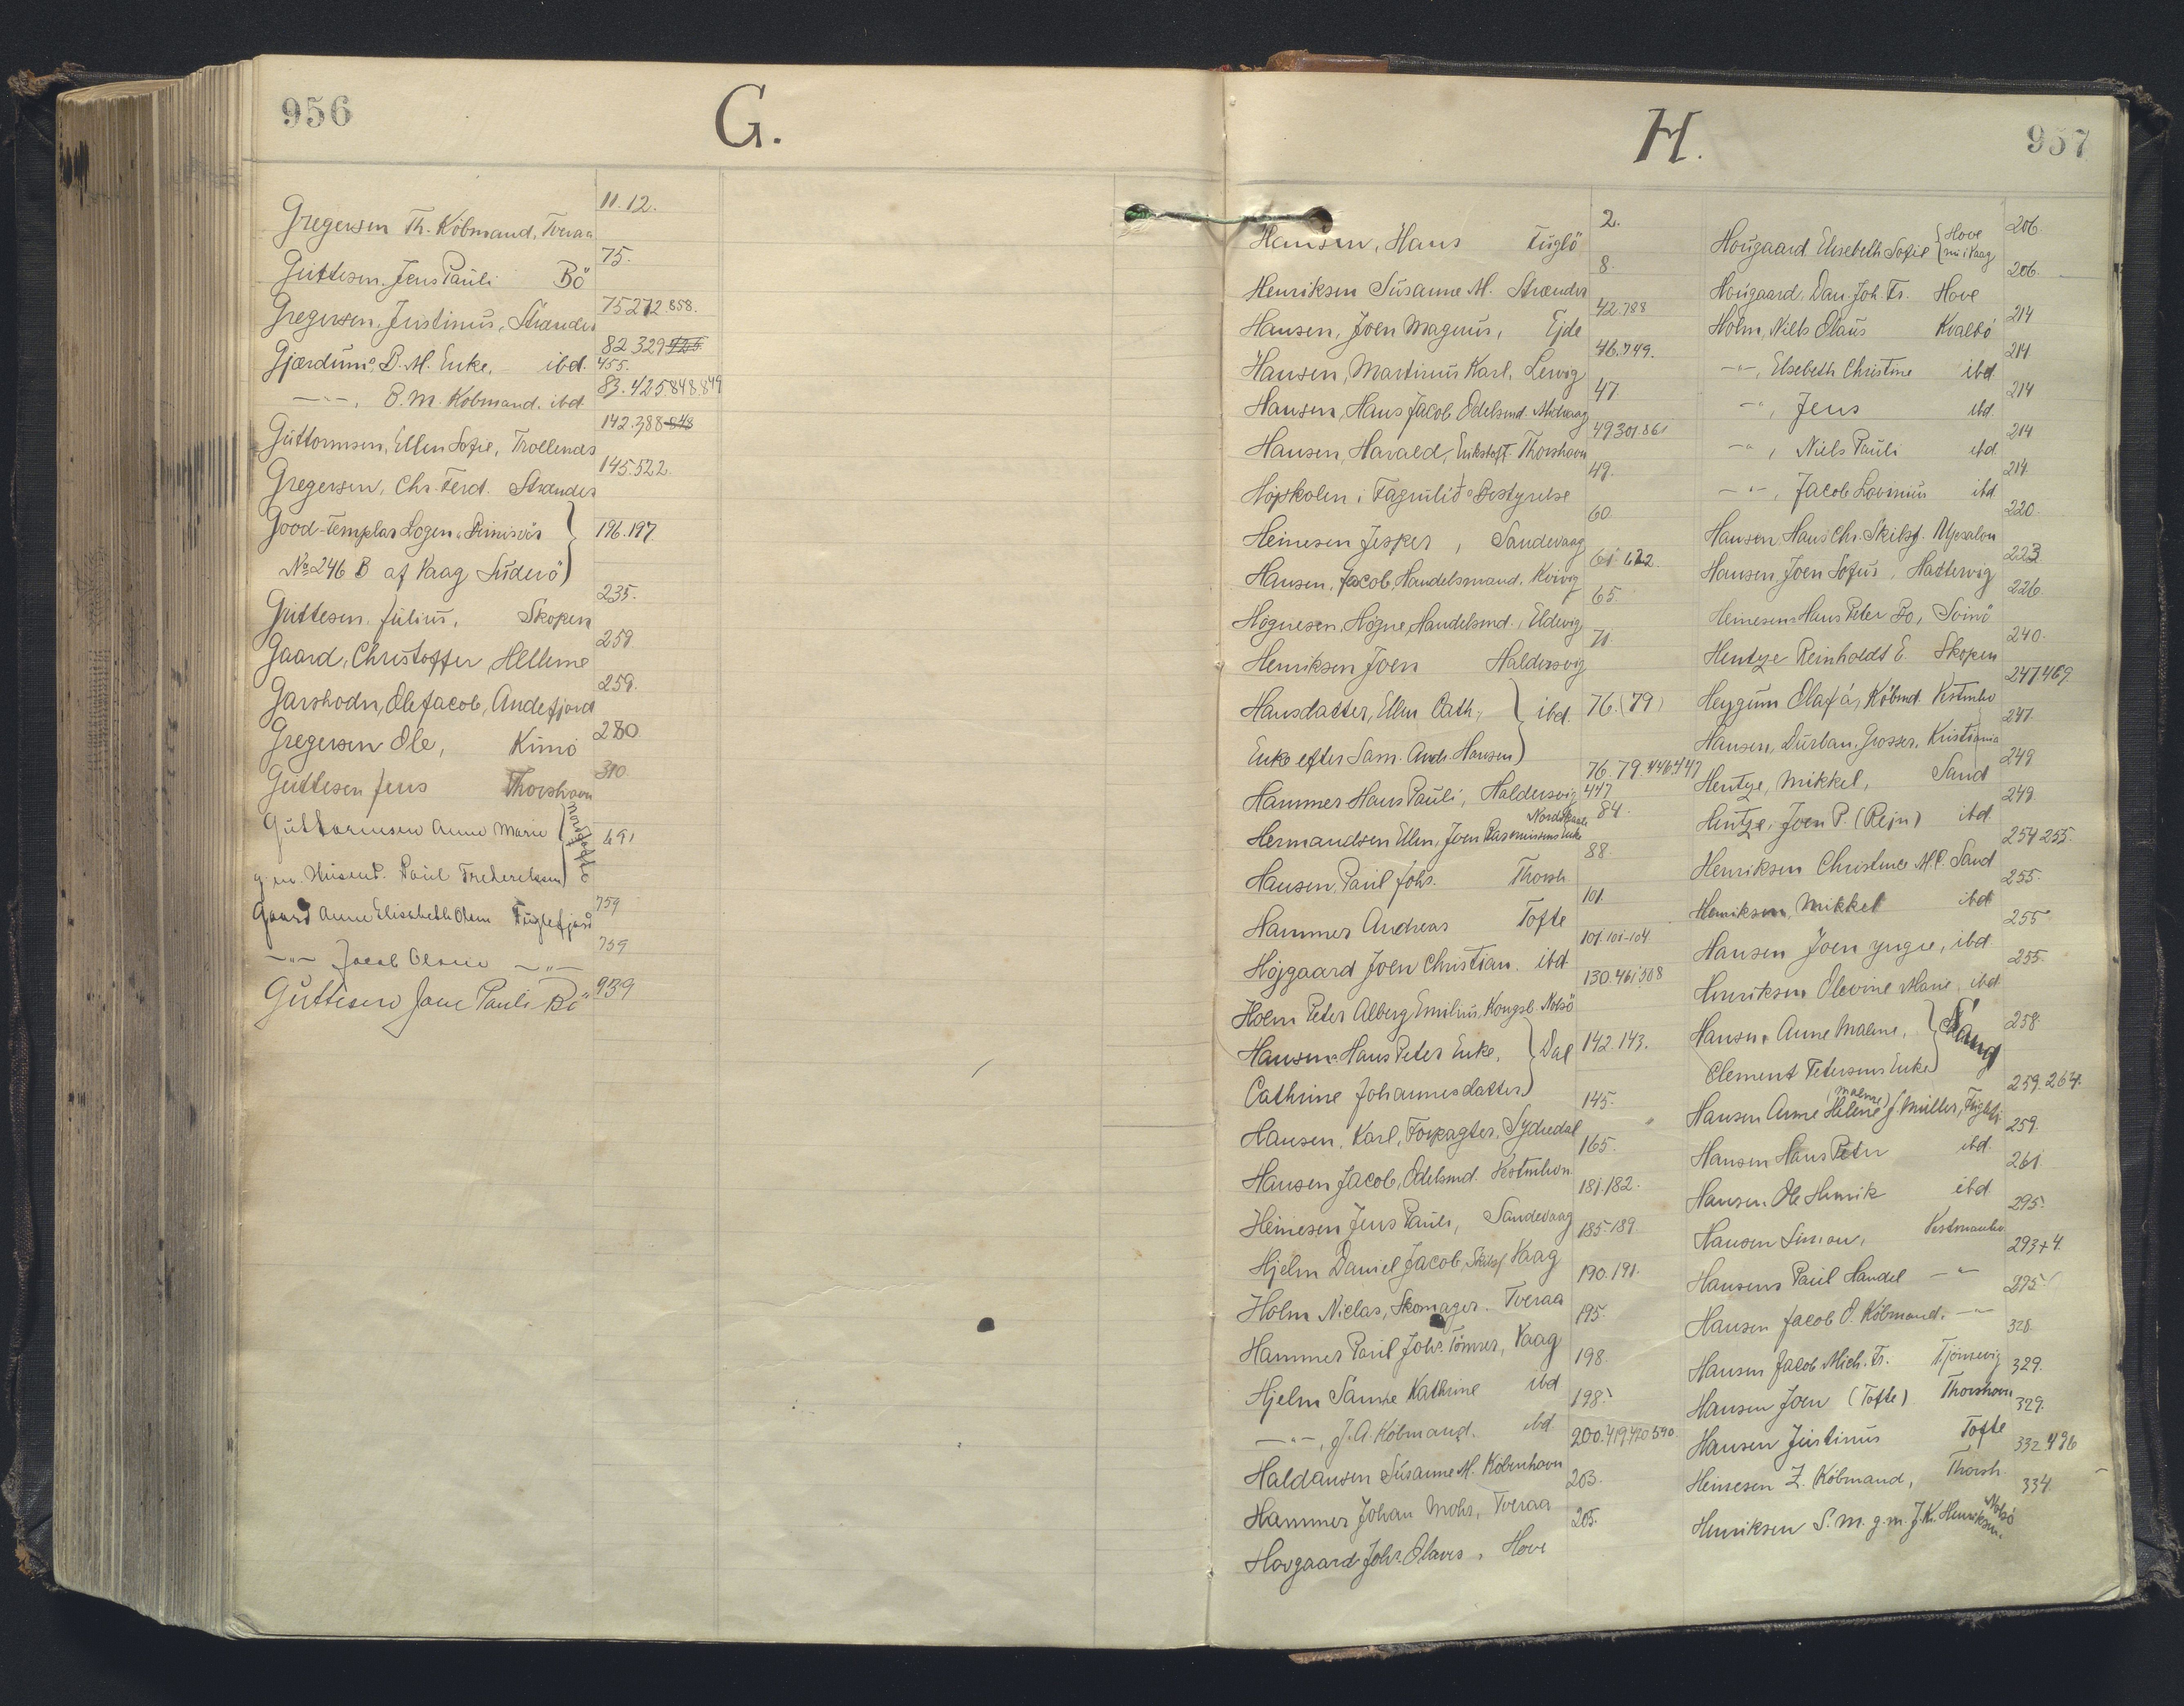 956
G.
Gregersen Th. Köbmand, Tveraa 11.12.
Guttesen. Jens Pauli Bö 75.
Gregersen, Justinus, Strænder 75.272 858.
Gjærdums, B. M. Enke, ibd. 82.329 455.
-"-, B. M. Köbmand. ibd. 83.425.848.849
Guttormsen, Ellen Sofie, Trollenæs 142.388 843
Gregersen, Chr. Ferd. Strænder 145.522.
Good-Templar Logen
No 246 B af Vaag Suderö 196.197
Guttesen, Julius, Skopen 235.
Gaard, Christoffer Hellerne 259.
Garshodn, Ole Jacob, Andefjord 259.
Gregersen Ole, Kunö 280.
Guttesen Jens Thorshavn 310.
Guttormsen Anne Marie
g. m. Poul Frederiksen 691
Gaard Anne Elisabeth Olsen Fuglefjord 759
-"- Jacob Olsen -"- 759
Guttesen Jens Pauli Bö 939
H.
957
Hansen, Hans Fuglö 2.
Henriksen Susanne M. Strænder 8.
Hansen, Joen Magnus, Ejde 42.788
Hansen, Martinus Karl, Lervig 46.749.
Hansen, Hans Jacob Odelsmd. Midvaag 47
Hansen, Harald, Thorshavn 49.301.861
Højskolen i Fagralið Bestyrelse 49.
Heinesen Jesper, Sandevaag 60.
Hansen, Jacob, Handelsmand, Kvivig 61 612
Høgnesen, Høgne, Handelsmd., Eldevig 65.
Henriksen Joen Haldersvig 71.
Hansdatter, Ellen Cath., ibd. 76.(79)
Enke efter Sam. Andr. Hansen
Hammer Hans Pauli, Haldersvig 76.79.446.447 447
Hermandsen Ellen, Joen Rasmussens Enke 84.
Hansen, Paul Johs. Thorsh. 88.
Hammer Andreas Tofte 101.
Højgaard Joen Christian. ibd 101.101-104
Holm Peter Alberg Emilius, Kongsb. Nolsö 130.461.508
Hansens Hans Peter Enke, Dal 142.143.
Cathrine Johannesdatter
Hansen, Karl, Forpagter, Sydredal 145.
Hansen Jacob, Odelsmd. Vestmhvn 165.
Heinesen Jens Pauli, Sandevaag 181.182.
Hjelm Daniel Jacob, Skibsf Vaag 185.189.
Holm Niclas, Skomager. Tveraa 190.191.
Hammer Paul Johs. Tömrer, Vaag 195.
Hjelm Sanne Kathrine ibd 198.
-"-, J. A. Köbmand. ibd. 198.
Haldansen Susanne M. Köbenhavn 200.419.420.590
Hammer Johan Mohr, Tveraa 203.
Hovgaard Johs. Olaves, Hove 205.
Hougaard Elsebeth Sofie Hove nu i Vaag 206.
Hougaard, Dan. Joh. Fr. Hove 206.
Holm, Niels Olaus Kvalbö 214
-"-, Elsebeth Christine ibd. 214
-"-, Jens ibd. 214
-"-, Niels Pauli ibd. 214
-"-, Jacob ibd. 214.
Hansen Hans Chr. Skibsf. 220.
Hansen, Joen Sofus, Hattervig 223
Heinesen Hans Peter Bo, Svinö 226.
Hentze Reinholdt E. Skopen 240.
Heygum Olaf á, Köbmd. Vestmhv 247.469
Hansen, Durban. Grosser. Kristiania 247.
Hentze, Mikkel, Sand 249
Hentze, Joen P. (Rejn) ibd. 249.
Henriksen Christine M.C. Sand 254.255.
Henriksen, Mikkel ibd. 255.
Hansen Joen yngre, ibd. 255
Henriksen Olevine Marie, ibd. 255.
Hansen Anne Malene, Sand 258.
Clement Petersens Enke
Hansen Anne Helene (Malene) f. Müller, 259.264.
Hansen Hans Peter ibd. 259.
Hansen Ole Henrik ibd. 261
Hansen Simon, Vestmanhv 295.
Hansens Paul Handel -"- 293+4.
Hansen Jacob O. Köbmand. -"- 295
Hansen Jacob Mich. Fr. Tjörnevig 328.
Hansen Joen (Tofte) Thorshavn 329.
Hansen Justinus Tofte 329.
Heinesen Z. Köbmand, Thorsh. 332.496
Henriksen S. M. g. m. J. K. Henriksen. Nolsö 334.